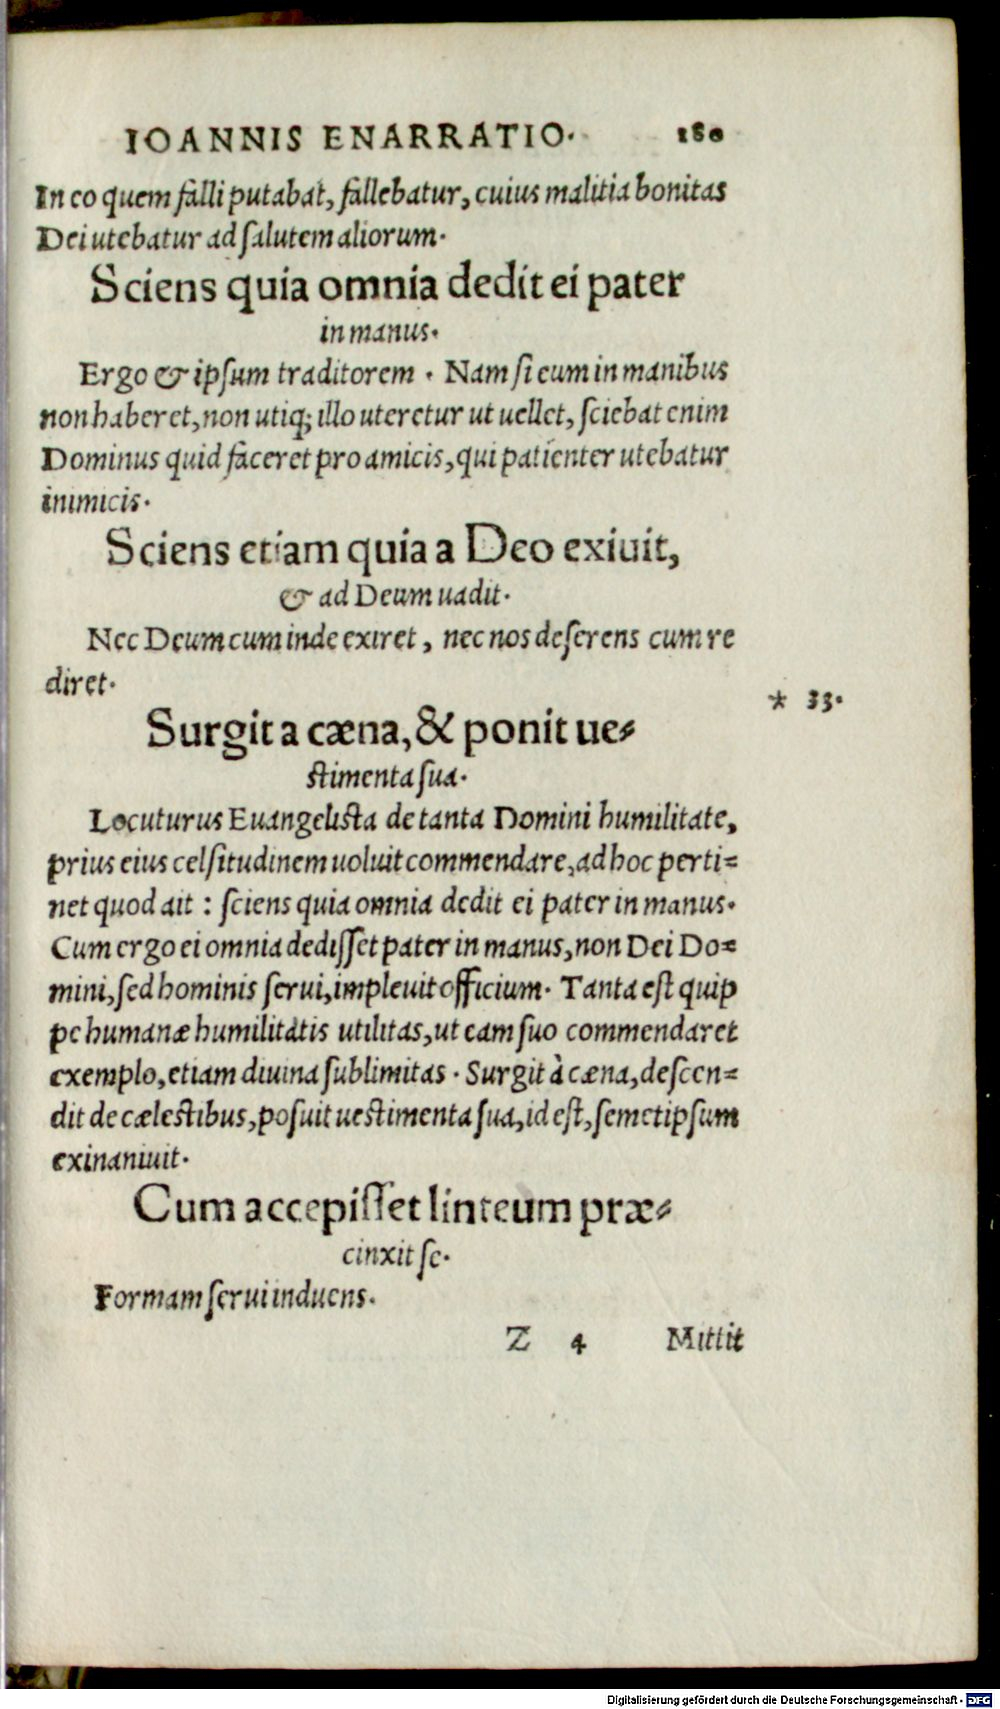 IOANNIS ENARRATIO. 180
In eo quem falli putabat, fallebatur, cuius malitia bonitas
Dei utebatur ad salutem aliorum.
Sciens quia omnia dedit ei pater
in manus.
Ergo & ipsum traditorem . Nam si eum in manibus
non haberet, non utiq; illo uteretur ut uellet, sciebat enim
Dominus quid faceret pro amicis, qui patienter utebatur
inimicis.
Sciens etiam quia a Deo exiuit,
& ad Deum uadit.
Nec Deum cum inde exiret, nec nos deserens cum re
diret.
* 33.
Surgit a cæna, & ponit ue-
stimenta sua.
Locuturus Euangelista de tanta Domini humilitate,
prius eius celsitudinem uoluit commendare, ad hoc perti-
net quod ait : sciens quia omnia dedit ei pater in manus.
Cum ergo ei omnia dedisset pater in manus, non Dei Do-
mini, sed hominis serui, impleuit officium. Tanta est quip
pe humanæ humilitatis utilitas, ut eam suo commendaret
exemplo, etiam diuina sublimitas . Surgit à cæna, descen-
dit de cælestibus, posuit uestimenta sua, id est, semetipsum
exinaniuit.
Cum accepisset linteum præ-
cinxit se.
Formam serui induens.
Z 4 Mittit
Digitalisierung gefördert durch die Deutsche Forschungsgemeinschaft - DFG